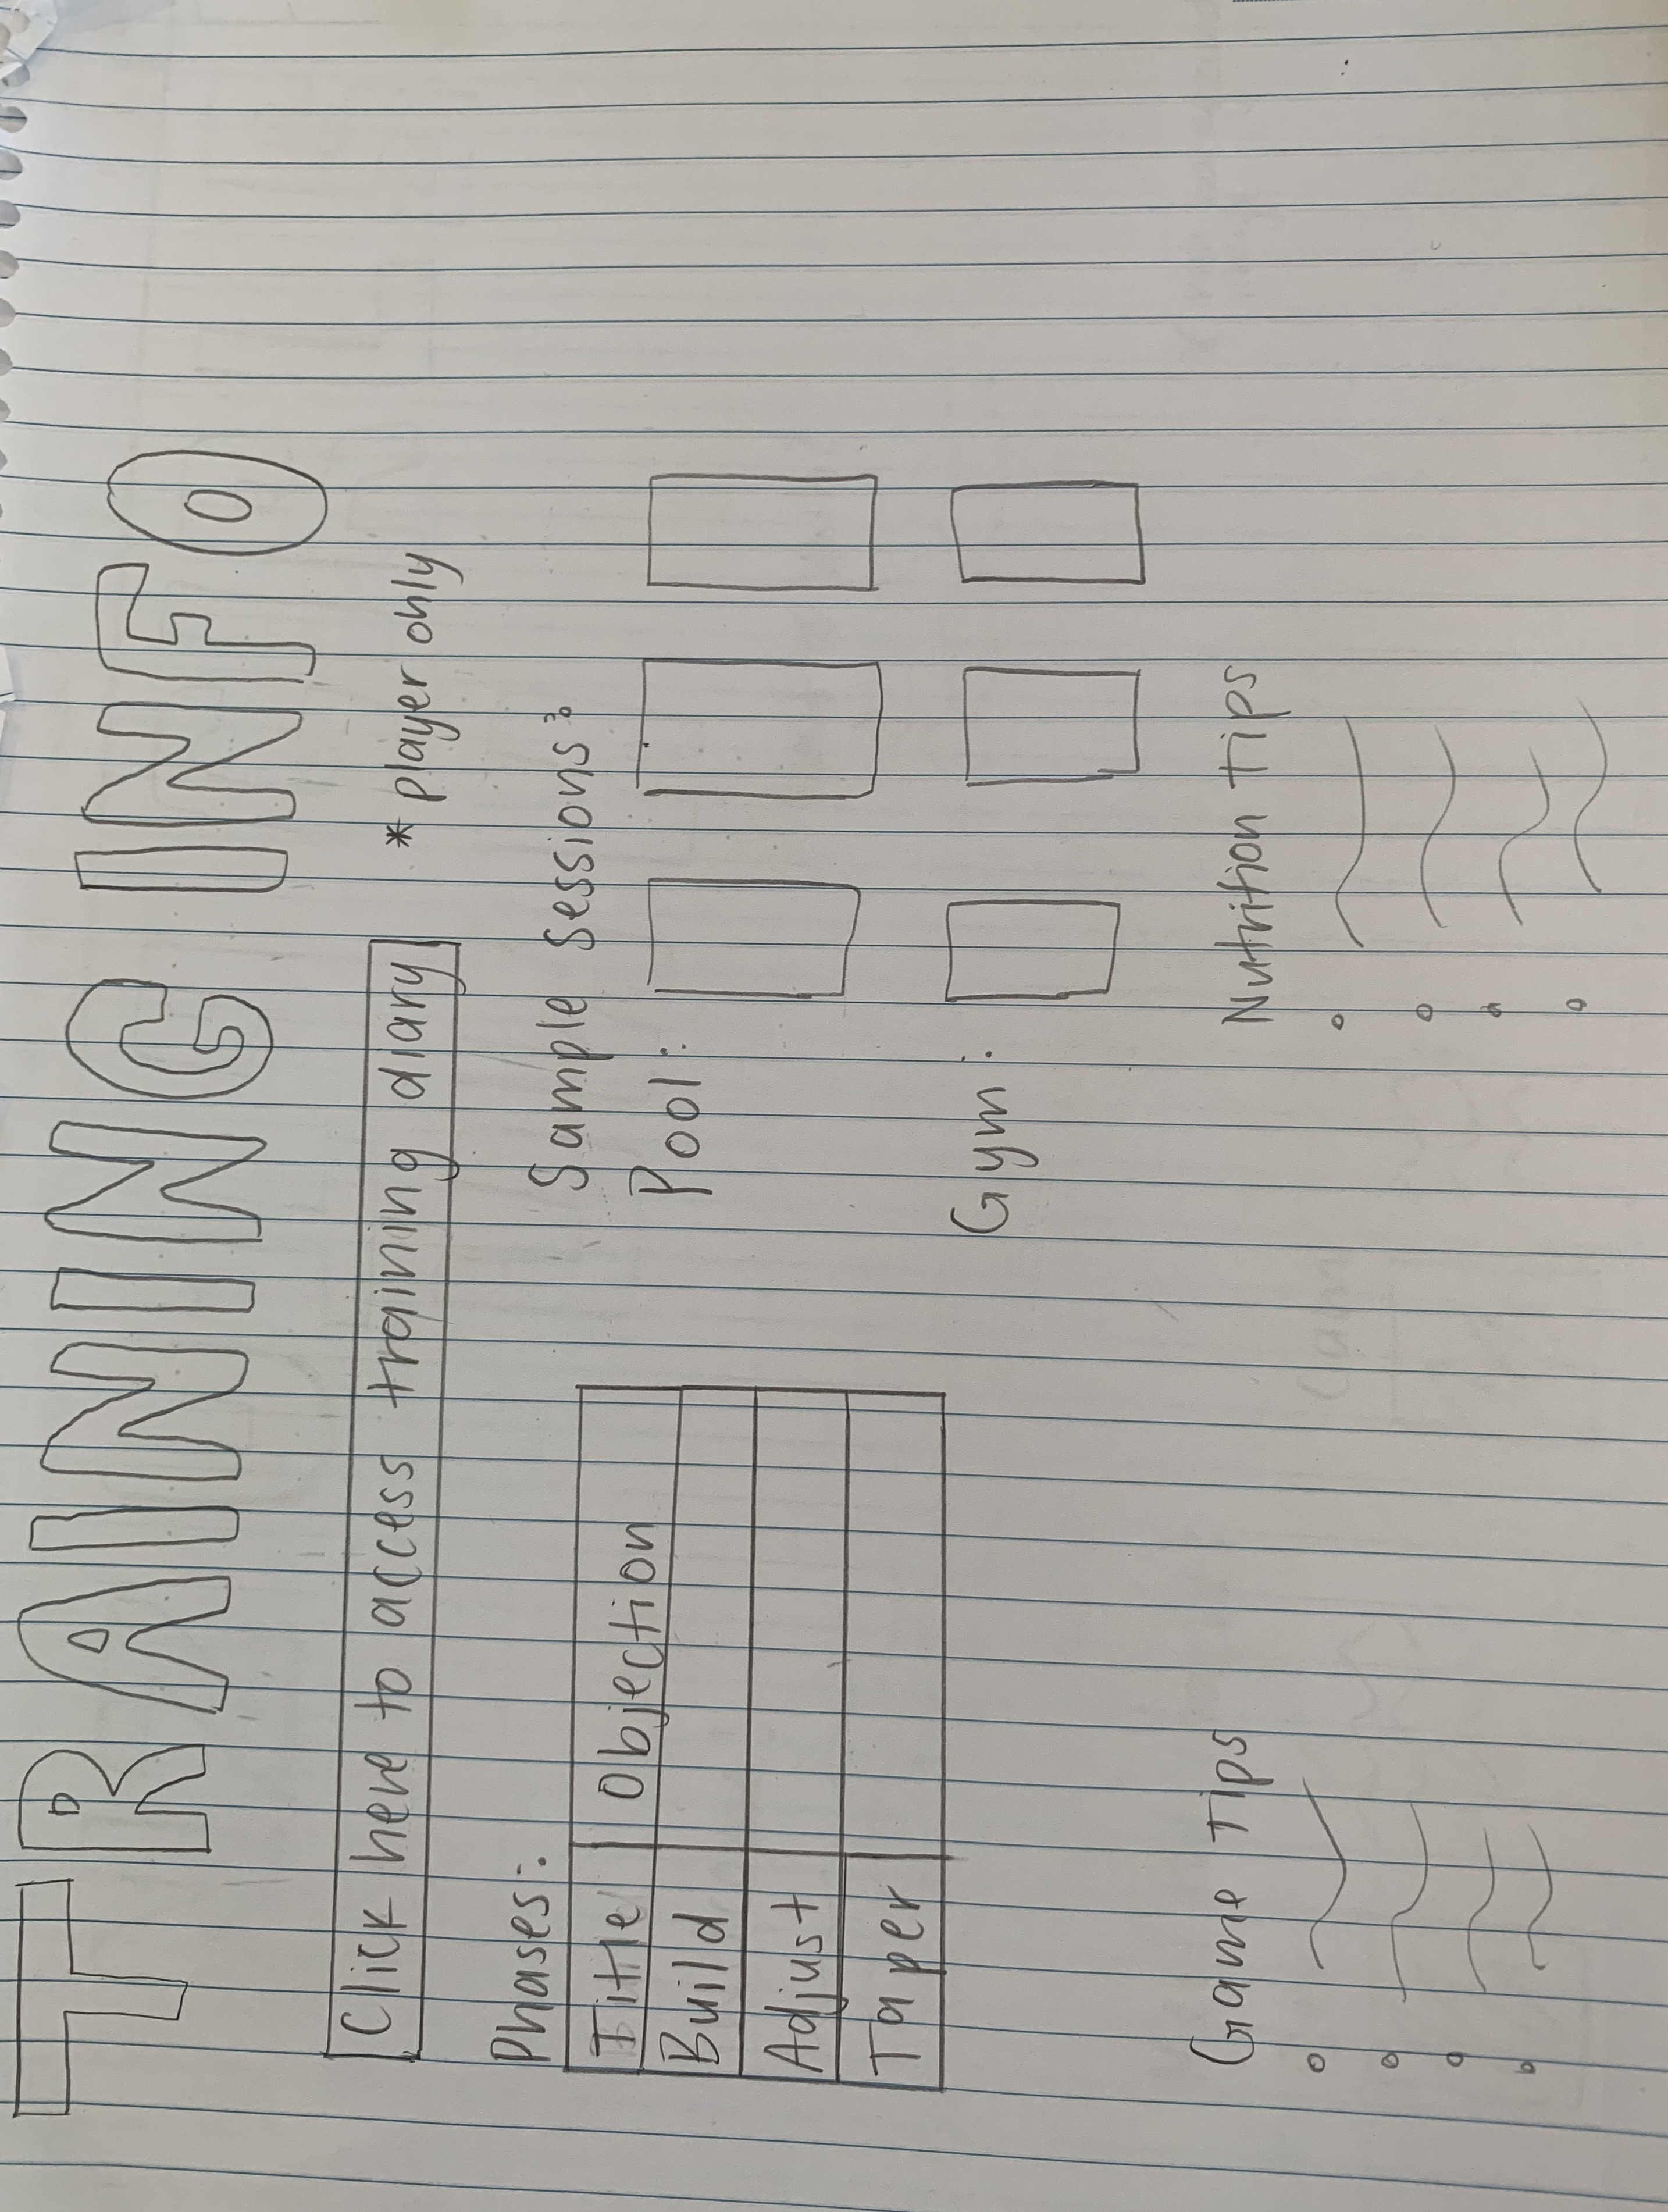 TRAINING INFO
Click here to access training diary * player only
Phases:
Title Objection
Build
Adjust
Taper
Sample Sessions:
Pool:
Gym:
Game Tips
Nutrition Tips